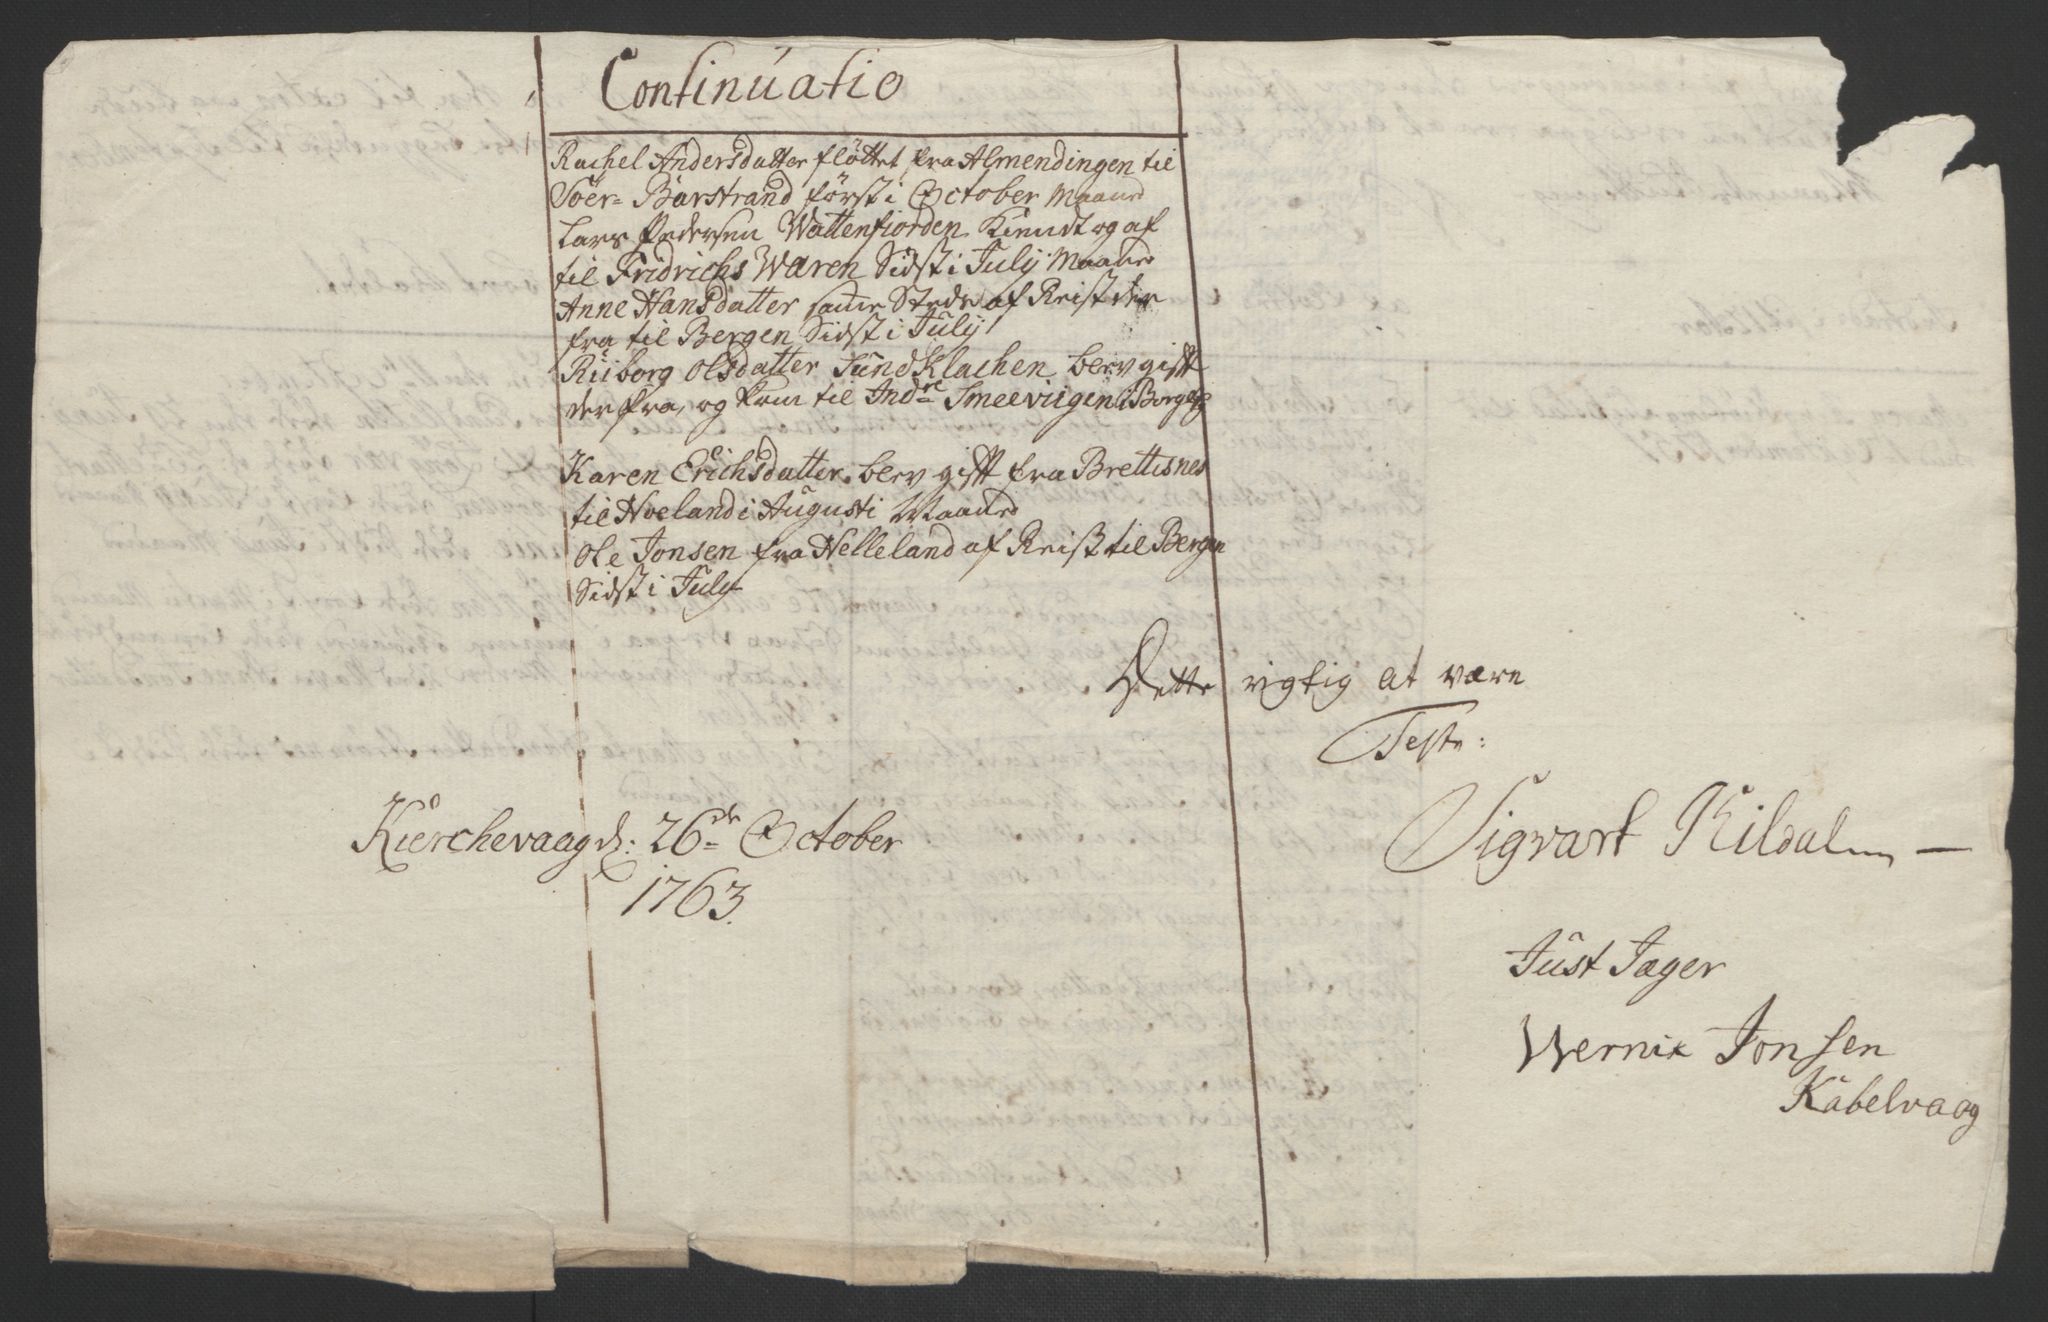 Continuatio
Rachel Andersdatter fløttet fra Almendingen til
Soer= Barstrand først i October Maaned
Lars Pedersen Wattenfiorden Kiendt og af
til Fridrichs Waren Sidst i July Maaned
Anne Hansdatter samme Steds af Reist der
fra til Bergen Sidst i July
Riiborg Olsdatter Sundklachen blev gift
der fra, og kom til Indre Smeeviigen i Borge
Karen Erichsdatter blev gift fra Brettisnes
til Hoeland i Augusti Maaned
Ole Jonsen fra Helleland af Reist til Bergen
Sidst i July
Dette rigtig at være
Teste:
Kierchevaag d: 26de October
1763.
Sigvart Kildal
Just Jæger
Wernix Jonsen
Kabelvaag